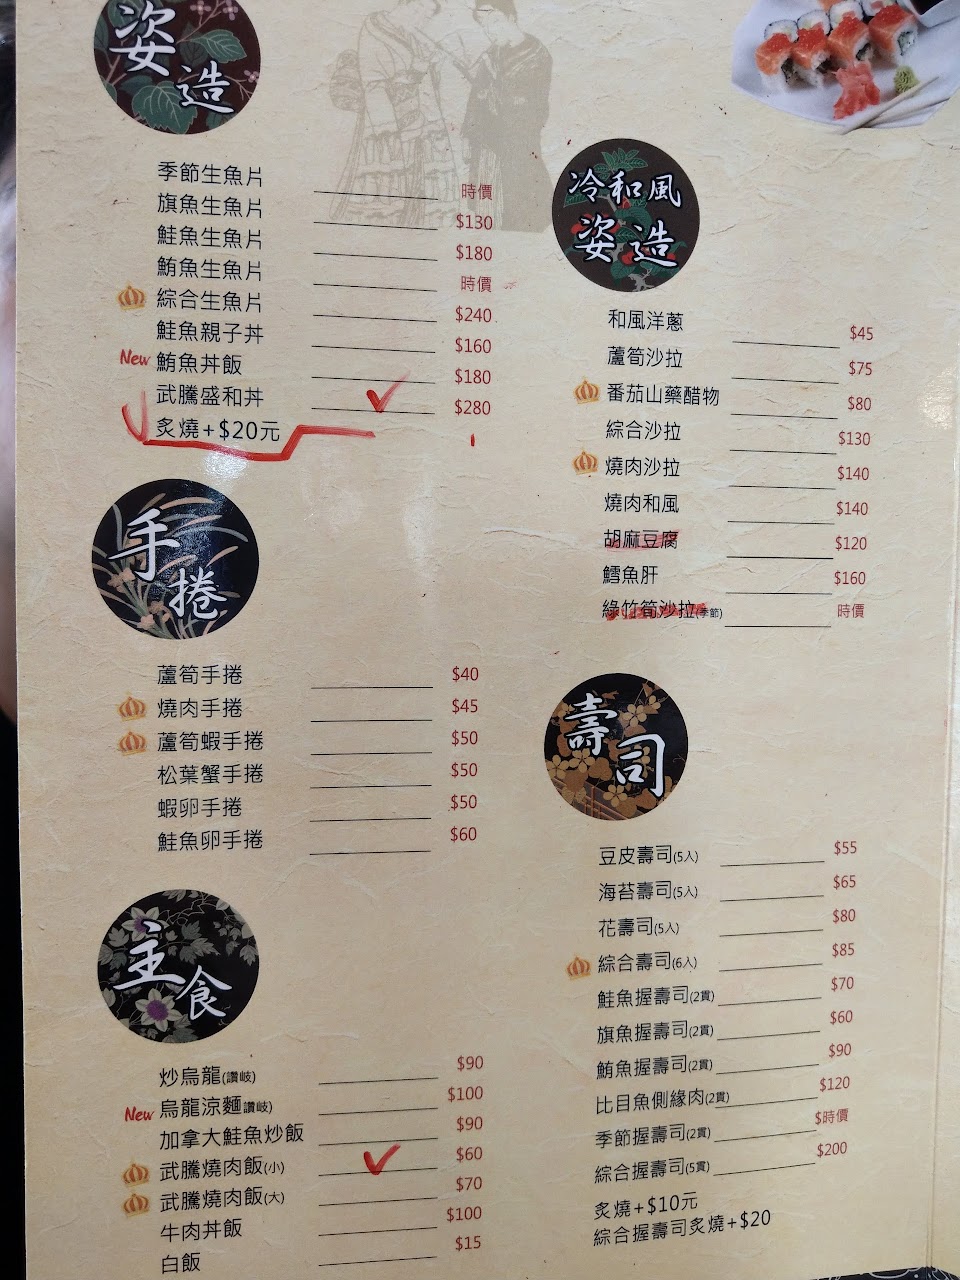 姿造
季節生魚片 時價
旗魚生魚片 $130
鮭魚生魚片 $180
鮪魚生魚片 時價
綜合生魚片 $240
鮭魚親子丼 $160
New 鮪魚丼飯 $180
武騰盛和丼 $280
炙燒+$20元
手捲
蘆筍手捲 $40
燒肉手捲 $45
蘆筍蝦手捲 $50
松葉蟹手捲 $50
蝦卵手捲 $50
鮭魚卵手捲 $60
主食
炒烏龍(讚岐) $90
New 烏龍涼麵(讚岐) $100
加拿大鮭魚炒飯 $90
武騰燒肉飯(小) $60
武騰燒肉飯(大) $70
牛肉丼飯 $100
白飯 $15
冷和風
姿造
和風洋蔥 $45
蘆筍沙拉 $75
番茄山藥醋物 $80
綜合沙拉 $130
燒肉沙拉 $140
燒肉和風 $140
胡麻豆腐 $120
鱈魚肝 $160
綠竹筍沙拉(季節) 時價
壽司
豆皮壽司(5入) $55
海苔壽司(5入) $65
花壽司(5入) $80
綜合壽司(6入) $85
鮭魚握壽司(2貫) $70
旗魚握壽司(2貫) $60
鮪魚握壽司(2貫) $90
比目魚側緣肉(2貫) $120
季節握壽司(2貫) $時價
綜合握壽司(5貫) $200
炙燒+$10元
綜合握壽司炙燒+$20